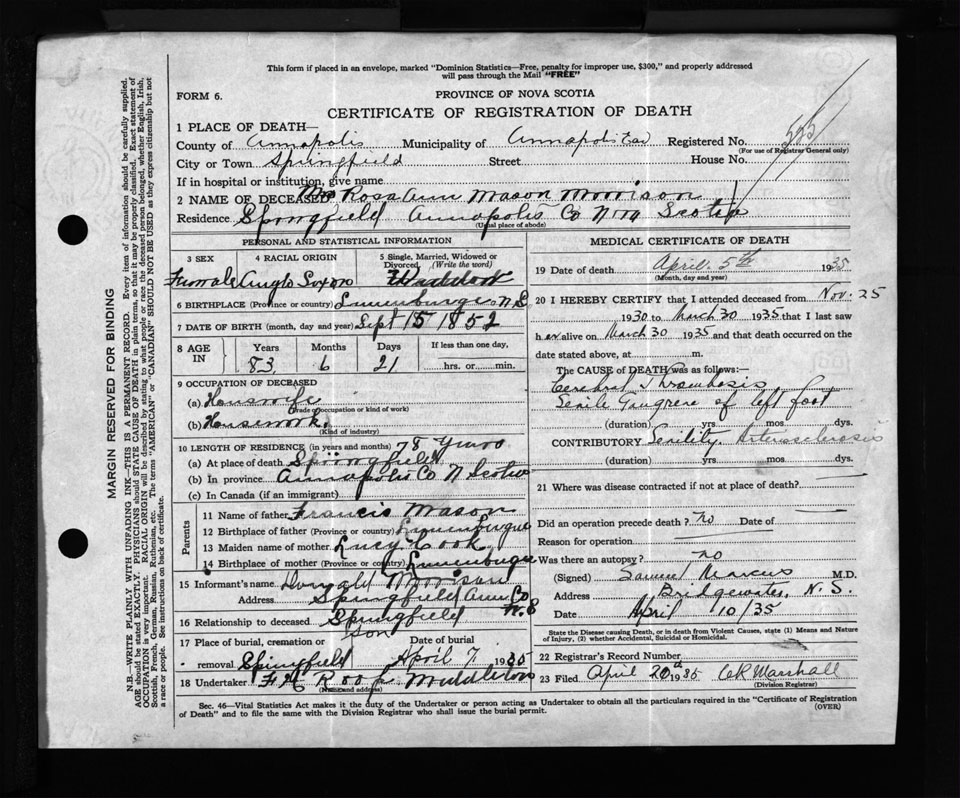 This form if placed in an envelope, marked "Dominion Statistics—Free, penalty for improper use, $300," and properly addressed
will pass through the Mail "FREE"
FORM 6.
PROVINCE OF NOVA SCOTIA
CERTIFICATE OF REGISTRATION OF DEATH
1 PLACE OF DEATH—
County of Annapolis Municipality of Annapolis Registered No.
(For use of Registrar General only)
City or Town Springfield Street House No.
If in hospital or institution, give name
2 NAME OF DECEASED Mrs Rosa Ann Mason Morrison
Residence Springfield Annapolis Co Nova Scotia
(Usual place of abode)
PERSONAL AND STATISTICAL INFORMATION
3 SEX 4 RACIAL ORIGIN 5 Single, Married, Widowed or Divorced (Write the word)
Female Anglo Saxon Widow
6 BIRTHPLACE (Province or country) Lunenburg N S
7 DATE OF BIRTH (month, day and year) Sept 15 1852
8 AGE IN Years Months Days If less than one day,
83 6 21 hrs. or min.
9 OCCUPATION OF DECEASED
(a) Housewife
(Trade or occupation or kind of work)
(b) Housework
(Kind of industry)
10 LENGTH OF RESIDENCE (in years and months) 78 Years
(a) At place of death Springfield
(b) In province Annapolis Co N Scotia
(c) In Canada (if an immigrant)
Parents
11 Name of father Francis Mason
12 Birthplace of father (Province or country) Lunenburg
13 Maiden name of mother Lucy Cook
14 Birthplace of mother (Province or country) Lunenburg
15 Informant's name Donald Morrison
Address Springfield Ann Co
N.S
16 Relationship to deceased Springfield
son
17 Place of burial, cremation or Date of burial
removal Springfield April 7 1935
18 Undertaker F H Roop Middleton
(Name and address)
MEDICAL CERTIFICATE OF DEATH
19 Date of death April 5th 1935
(Month, day and year)
20 I HEREBY CERTIFY that I attended deceased from Nov. 25
1930 to March 30 1935 that I last saw
h er alive on March 30 1935 and that death occurred on the
date stated above, at m.
The CAUSE of DEATH was as follows:—
Cerebral Thrombosis
Senile Gangrene of left foot
(duration) yrs. mos. dys.
CONTRIBUTORY Senility. Arteriosclerosis
(duration) yrs mos. dys.
21 Where was disease contracted if not at place of death?
Did an operation precede death? no Date of
Reason for operation
Was there an autopsy? no
(Signed) Samuel Marcus M.D.
Address Bridgewater, N. S.
Date April 10/35
State the Disease causing Death, or in death from Violent Causes, state (1) Means and Nature
of Injury, (2) whether Accidental, Suicidal or Homicidal.
22 Registrar's Record Number
23 Filed April 20th 1935 Marshall
(Division Registrar)
Sec. 46—Vital Statistics Act makes it the duty of the Undertaker or person acting as Undertaker to obtain all the particulars required in the "Certificate of Registration
of Death" and to file the same with the Division Registrar who shall issue the burial permit.
(OVER)
MARGIN RESERVED FOR BINDING
N.B.—WRITE PLAINLY WITH UNFADING INK—THIS IS A PERMANENT RECORD. Every item of information should be carefully supplied.
AGE should be stated EXACTLY. PHYSICIANS should STATE CAUSE OF DEATH in plain terms, so that it may be properly classified. Exact statement of
OCCUPATION is very important. RACIAL ORIGIN will be described by stating to what people or race the deceased person belonged, whether English, Irish,
Scottish, French, German, Russian, Ruthenian, etc. The terms "AMERICAN" or "CANADIAN" SHOULD NOT BE USED as they express citizenship but not
a race or people. See instructions on back of certificate.